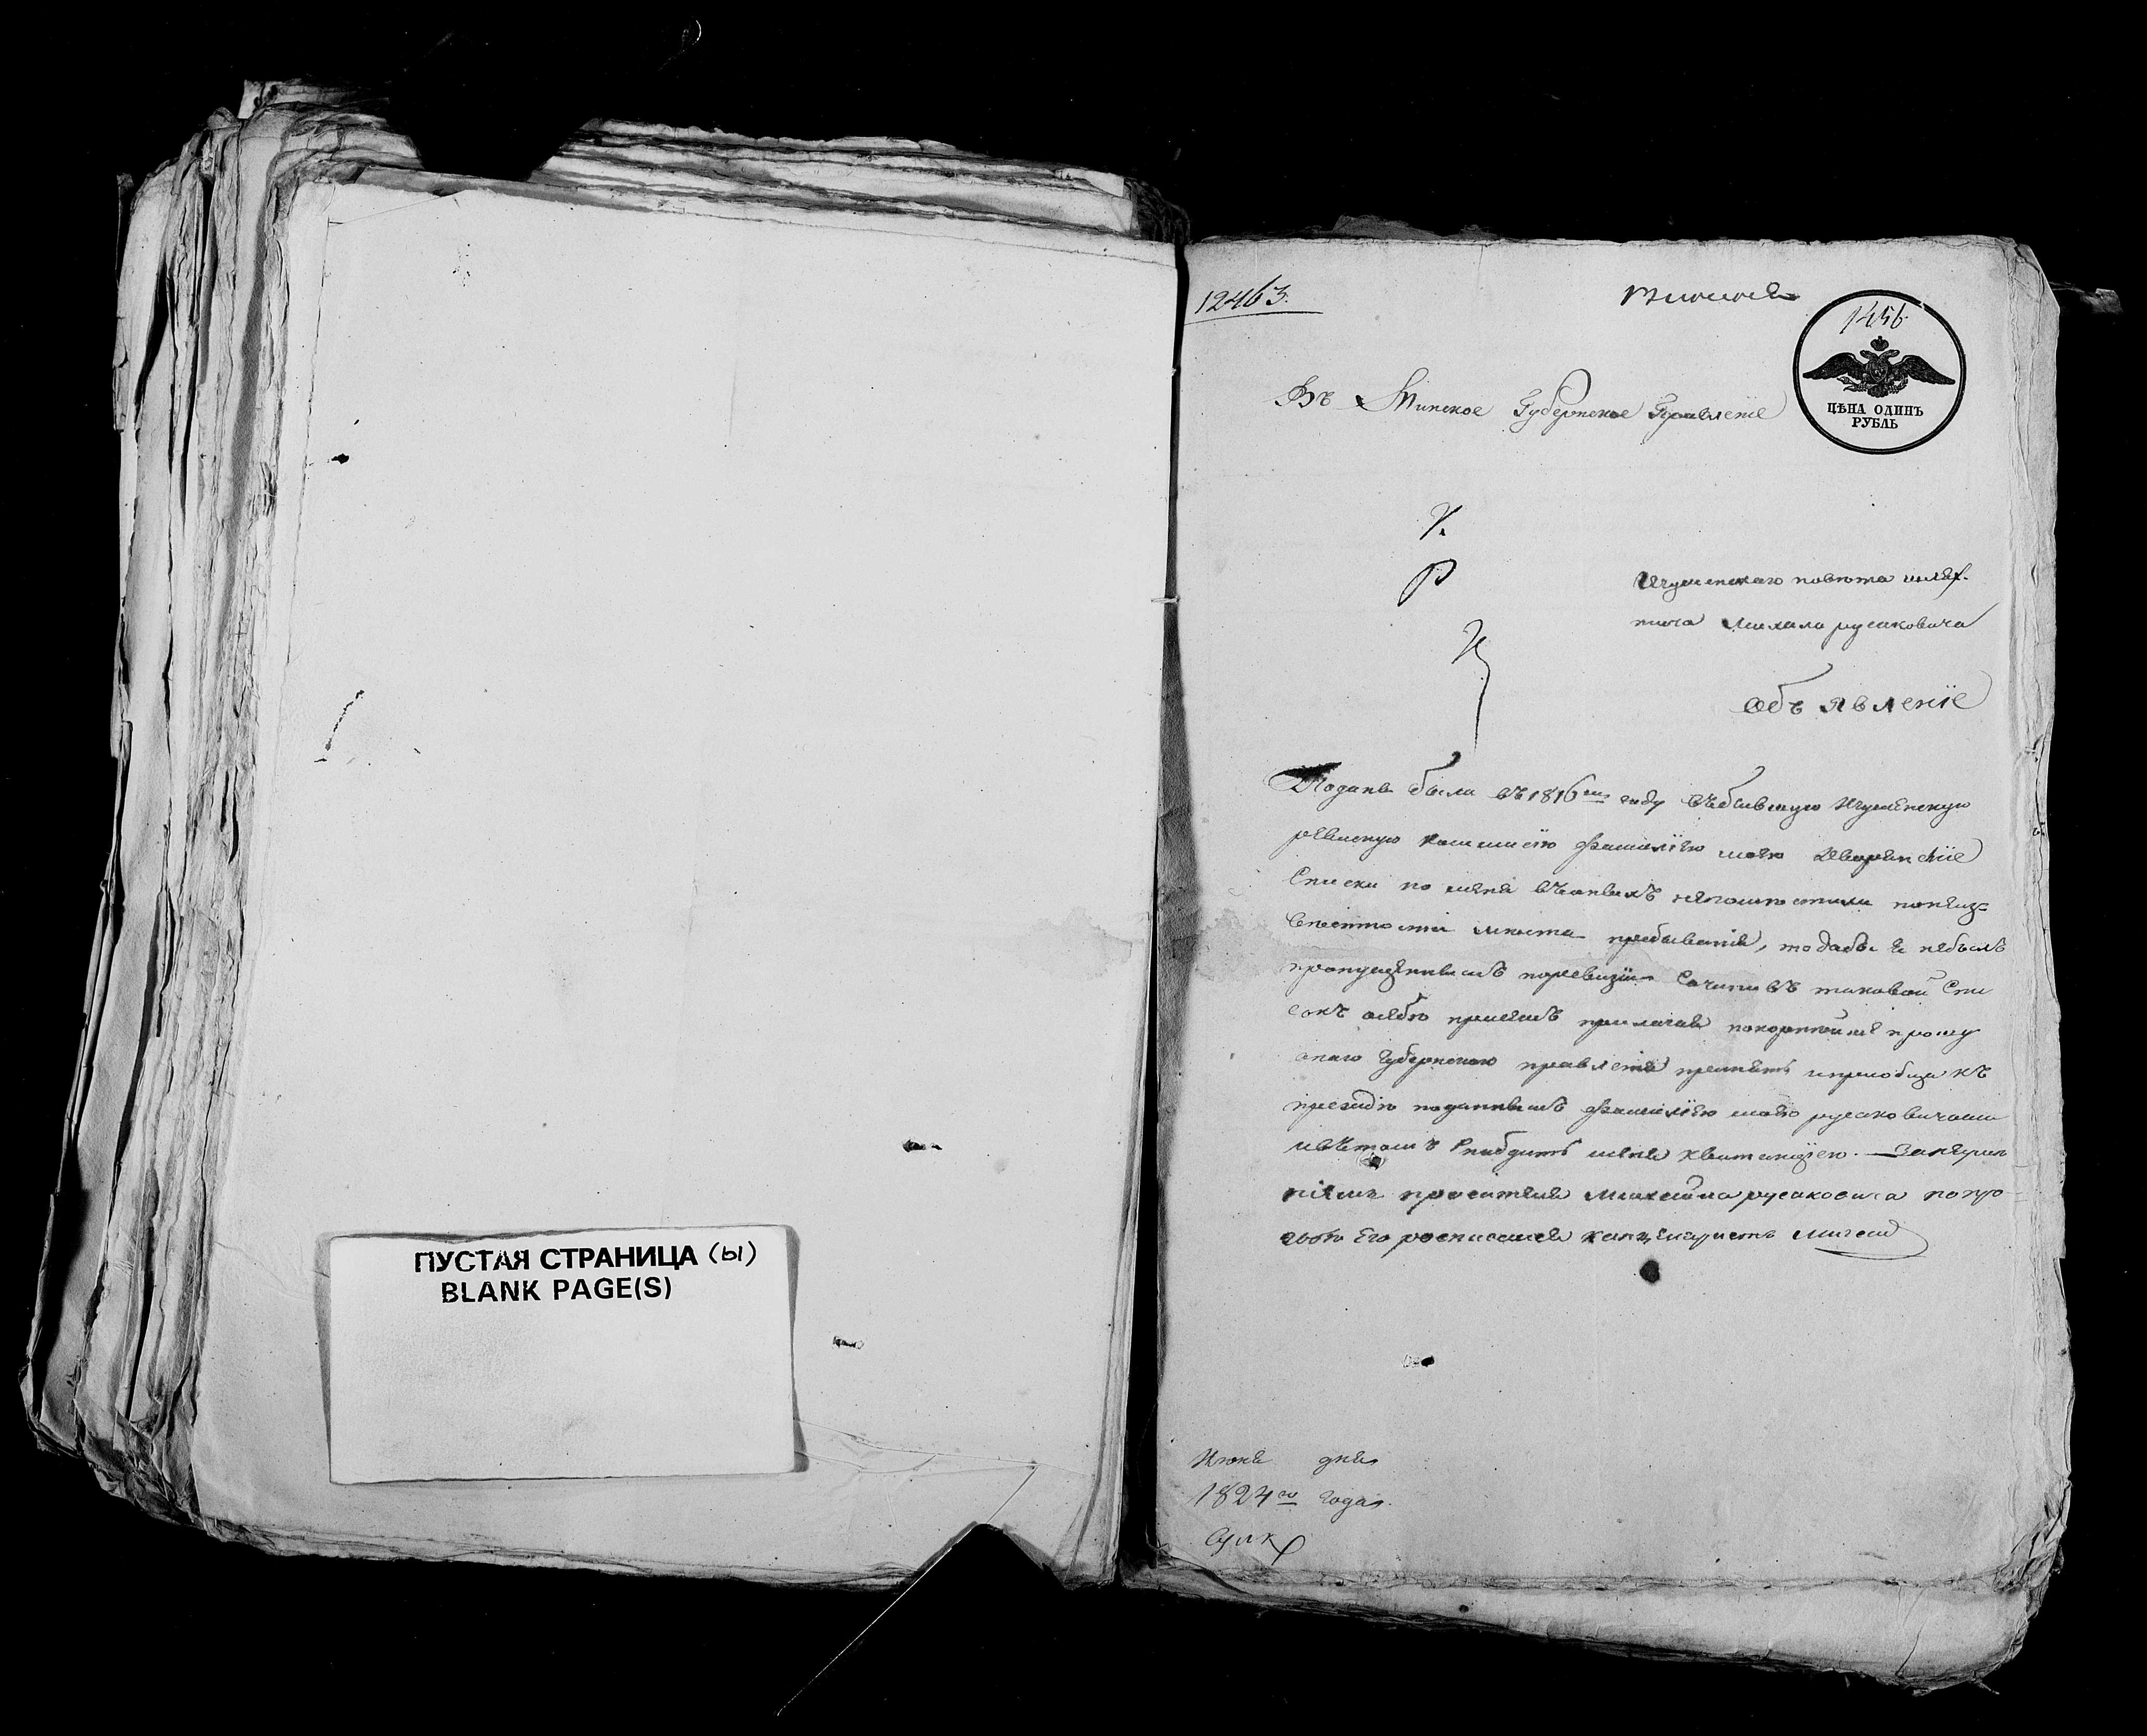 ПУСТАЯ СТРАНИЦА (ы)
BLANK PAGE(S)
12463.
1456
ЦѢНА ОДИНЪ
РУБЛЬ
Въ Минское Губернское Правленіе
Игуменскаго повѣта шлях-
тича Михала русаковича
Объявленіе
Поданы были въ 1816 м году въ бывшую Игуменскую
ревизскую комисію фамиліею моею Дворянскіе
Списки но меня въ оныхъ непомѣстили понеиз=
вестности мѣста пребыванія, то дабы я небылъ
пропущеннымъ поревизіи Сочинивъ таковой Спи
сокъ особо при семъ прилагая покорнейше прошу
оное Губернское правленіе принять и приобща къ
преждѣ поданнымъ фамиліею моею русаковичами
въ томъ Снабдить меня квитанціею. —
просителя русаковича по про
его росписался канцеляристъ
Июня дня
1824 го года.